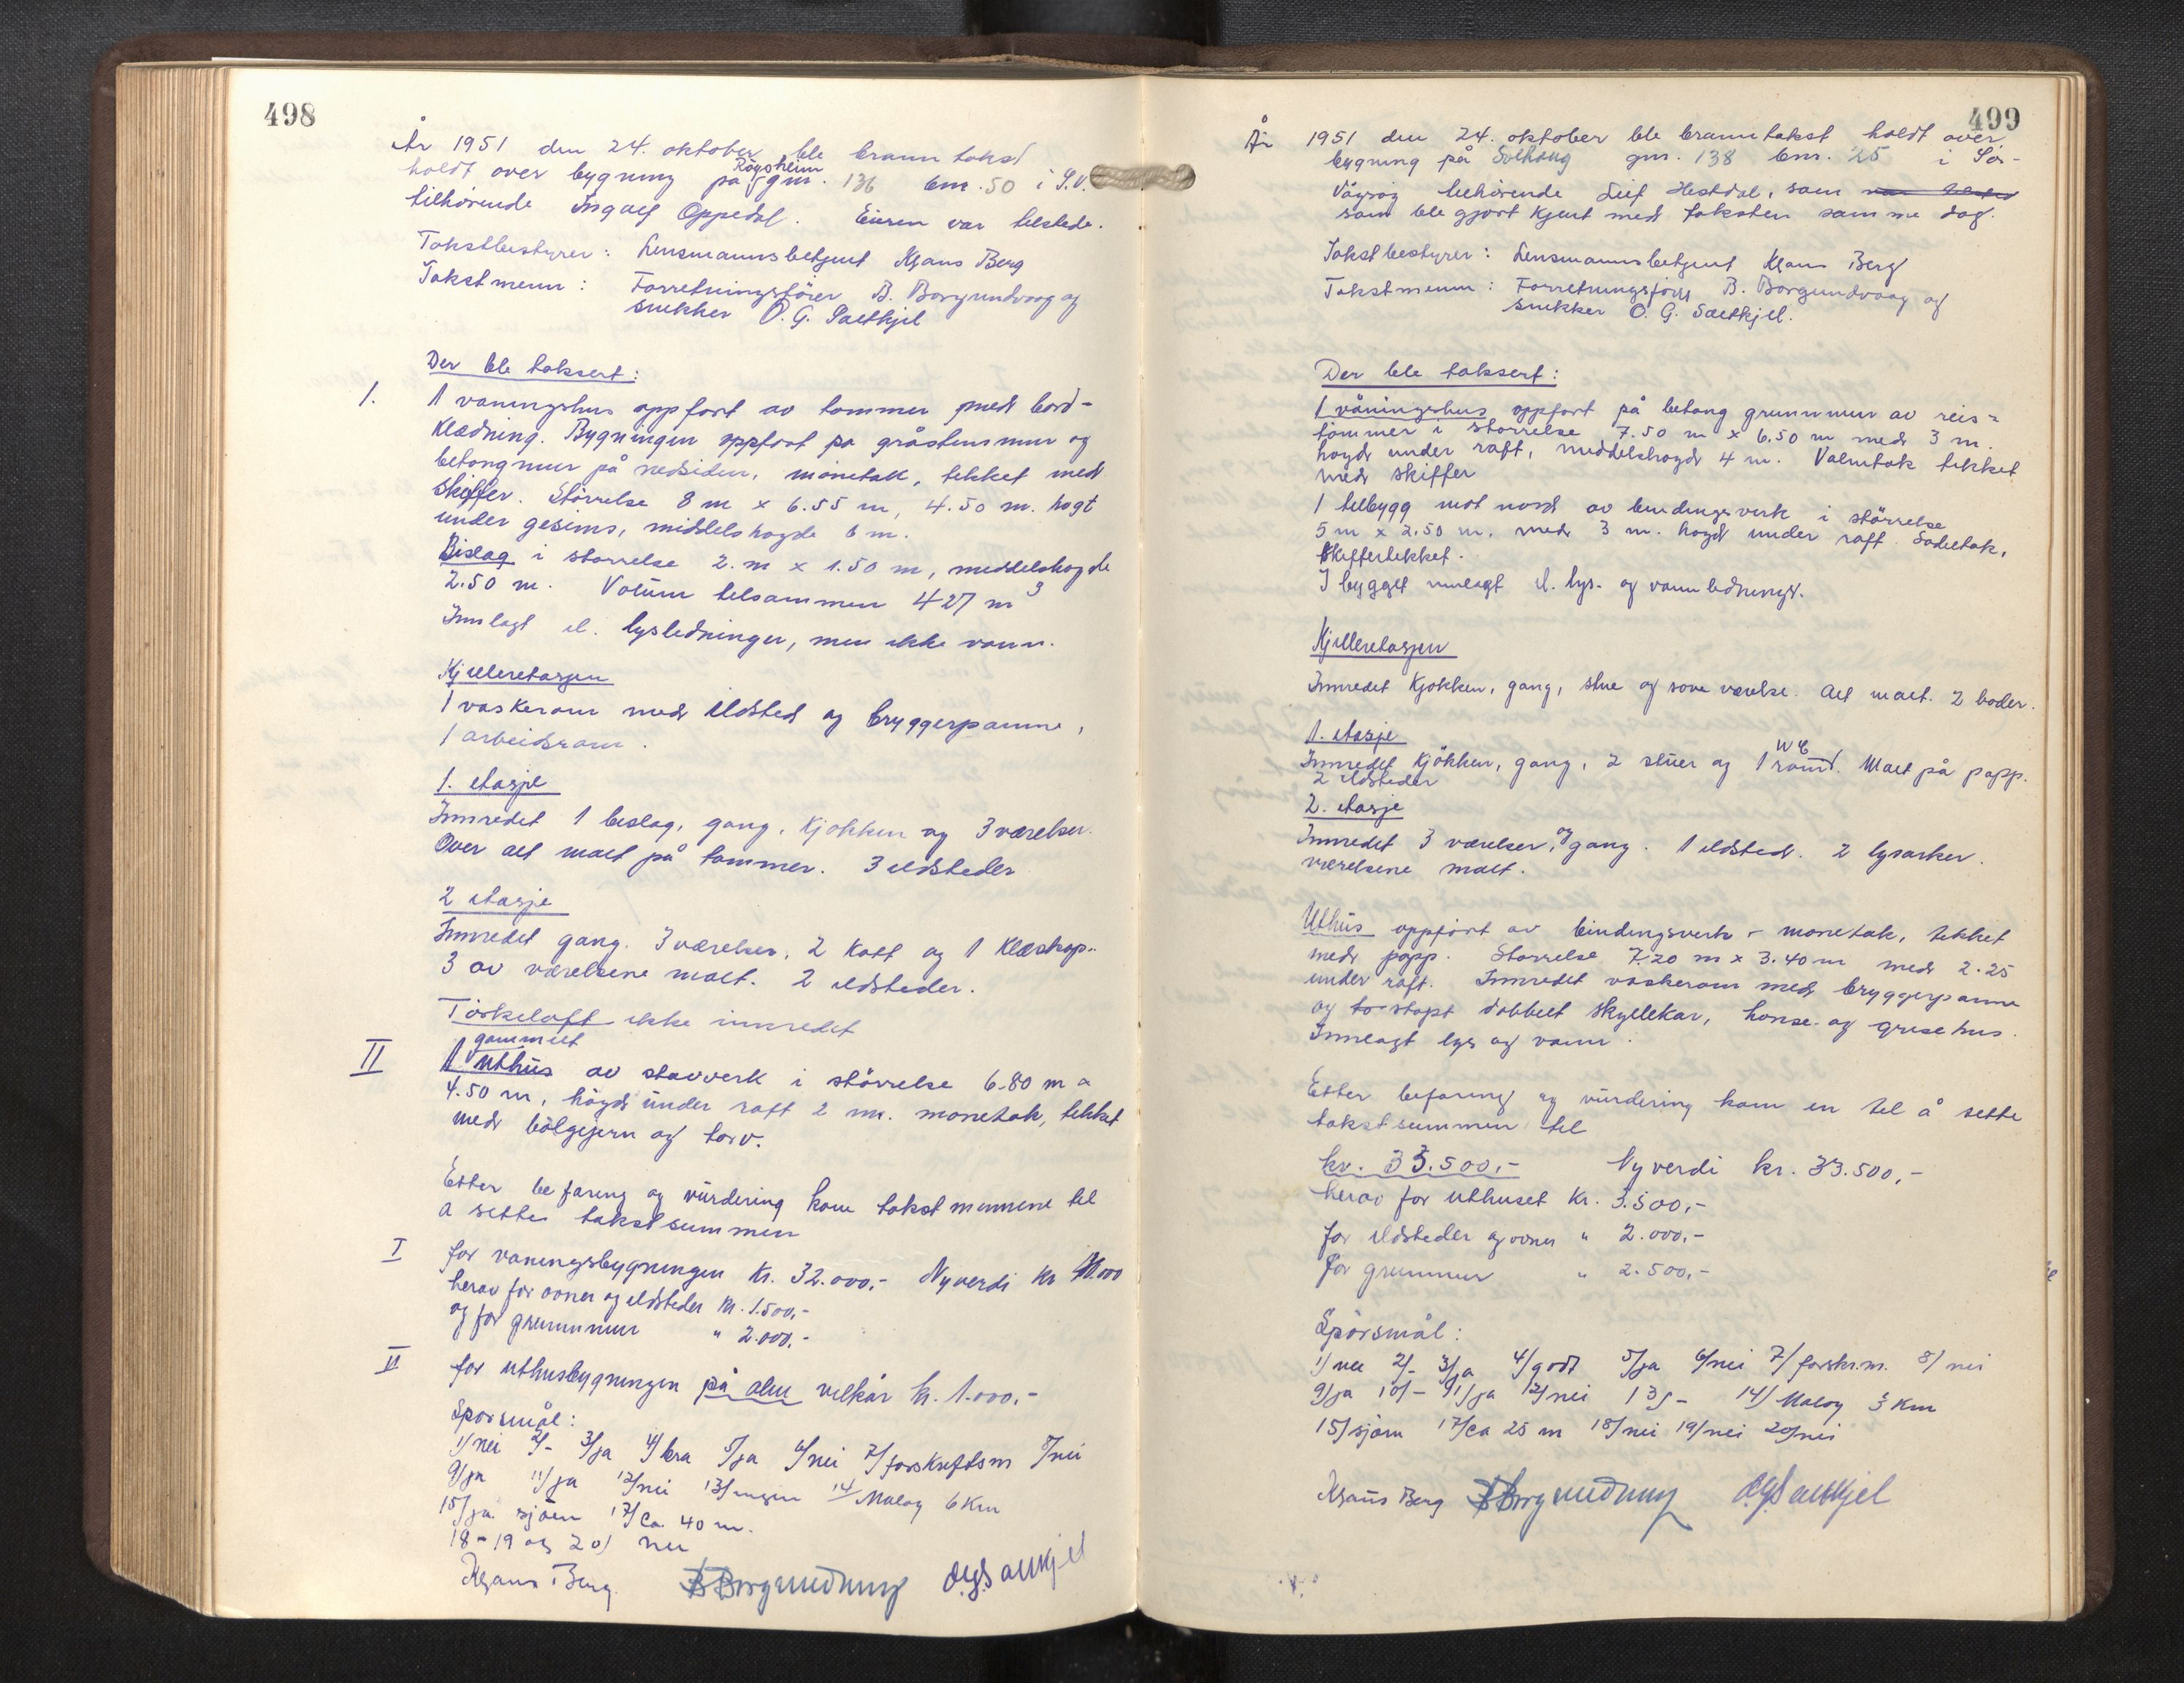 498
År 1951 den 24. oktober ble branntakst
holdt over bygning på Rögsheim gnr. 136 bnr. 50 i S.V.
tilhörende Ingolf Oppedal. Eieren var tilstede.
Takstbestyrer: Lensmannsbetjent Klaus Berg
Takstmenn: Forretningsförer B. Borgundvaag og
snekker O. G. Sætkjel
Der ble taksert:
1. 1 våningshus oppført av tømmer med bord-
klædning. Bygningen oppført på gråstensmur og
betongmur på nedsiden, mönetak, tekket med
skiffer. Störrelse 8 m x 6.55 m, 4.50 m. høgt
under gesims, middelshøgde 6 m.
Bislag i størrelse 2. m x 1.50 m, middelshøgde
2.50 m. Volum tilsammen 427 m3
Innlagt el. lysledninger, men ikke vann.
Kjelleretasjen
1 vaskerom med ildsted og bryggerpanne,
1 arbeidsrom.
1. etasje
Innredet 1 beslag, gang, kjøkken og 3 værelser.
Over alt malt på tømmer. 3 ildsteder
2 etasje
Innredet gang. 3 værelser, 2 kott og 1 klæskap.
3 av værelsene malt. 2 ildsteder.
Törkeloft ikke innredet
II 1 gammelt uthus av stavverk i störrelse 6.80 m x
4.50 m, høgd under raft 2 m. mønetak, tekket
med bölgejern og torv.
Etter befaring og vurdering kom takstmennene til
å sette takstsummen
I for våningsbygningen kr. 32.000,- Nyverdi kr
herav for ovner og ildsteder kr. 1.500,-
og for grunnmur " 2.000,-
II for uthusbygningen på alm vilkår kr. 1.000,-
Spørsmål:
1/nei 2/- 3/ja 4/bra 5/ja 6/nei 7/forskriftsm 8/nei
9/ja 11/ja 12/nei 13/ingen 14/Måløy 6 km
15/ja. sjøen 17/Ca. 40 m.
18-19 og 20/ nei
Klaus Berg. B Borgundvaag O.G.Sætkjel
499
År 1951 den 24. oktober ble branntakst holdt over
bygning på Solhaug gnr. 138 bnr. 25 i Sør-
Vågsøy tilhørende Leif Hestdal, som var tilsted
som ble gjort kjent med taksten samme dag.
Takstbestyrer: Lensmannsbetjent Klaus Berg
Takstmenn: Forretningsförer B. Borgundvaag og
snekker O. G. Sætkjel.
Der ble taksert:
1 våningshus oppfört på betong grunnmur av reis-
tömmer i størrelse 7.50 m x 6.50 m med 3 m.
høgd under raft, middelshøgd 4 m. Valmtak tekket
med skiffer
1 tilbygg mot nord av bindingsverk i störrelse
5 m x 2.50 m. med 3 m. høgd under raft. Sadeltak,
skiffertekket.
I bygget innlagt el. lys- og vannledninger.
Kjelleretasjen
Innredet kjøkken, gang, stue og soveværelse. Alt malt. 2 boder.
1. etasje
Innredet kjökken, gang, 2 stuer og 1 WC rom. Malt på papp.
2 ildsteder
2. etasje
Innredet 3 værelser, og gang. 1 ildsted. 2 lysarker.
værelsene malt.
Uthus oppført av bindingsverk - mønetak, tekket
med papp. Størrelse 7.20 m x 3.40 m med 2.25
under raft. Innredet vaskerom med bryggerpanne
og to støpt dobbelt skyllekar, hønse- og grisehus.
Innlagt lys og vann.
Etter befaring og vurdering kom en til å sette
takstsummen til
kr. 33.500,- Nyverdi kr. 33.500,-
herav for uthuset kr. 3.500,-
for ildsteder og ovner " 2.000,-
for grunnmur " 2.500,-
Spørsmål:
1/ nei 2/- 3/ja 4/godt 5/ja 6/nei 7/forskr.m. 8/ nei
9/ja 10/- 11/ja 12/nei 13/- 14/ Måløy 3 km
15/sjøen 17/ca 25 m 18/nei 19/nei 20/nei
Klaus Berg B Borgundvaag O.G.Sætkjel